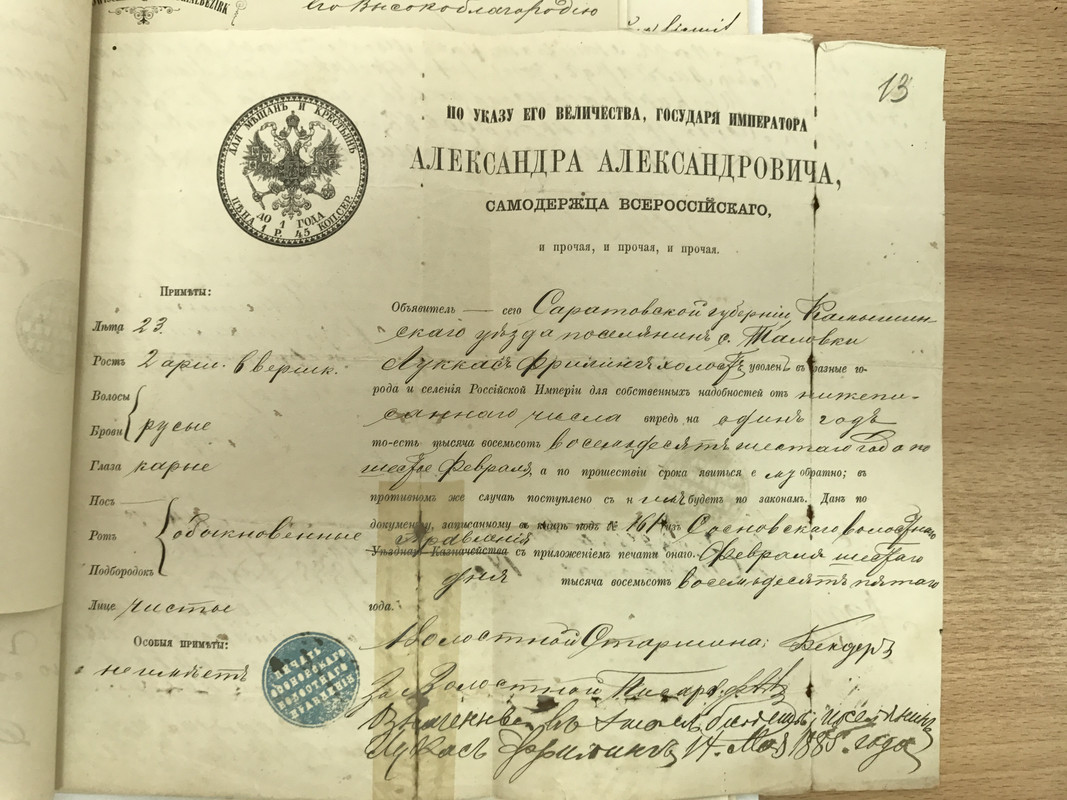 Его Высокоблагородію
13
ДЛЯ МѢЩАНЪ И КРЕСТЬЯНЪ
ДО 1 ГОДА
ЦѢНА 1 Р. 45 КОП. СЕР.
ПО УКАЗУ ЕГО ВЕЛИЧЕСТВА, ГОСУДАРЯ ИМПЕРАТОРА
АЛЕКСАНДРА АЛЕКСАНДРОВИЧА,
САМОДЕРЖЦА ВСЕРОССІЙСКАГО,
и прочая, и прочая, и прочая.
Примѣты:
Лѣта 23
Ростъ 2 арш. 6 вершк.
Волосы
Брови русые
Глаза карые
Носъ
Ротъ обыкновенные
Подбородокъ
Лице чистое
Особыя примѣты:
не имѣетъ
ПЕЧАТЬ
СОСНОВСКАГО
ВОЛОСТНАГО
ПРАВЛЕНІЯ
Объявитель — сего Саратовской губерніи, Камышин-
скаго уѣзда поселянинъ с. Таловки
Луккасъ Фрилингъ холостъ уволенъ въ разные го-
рода и селенія Россійской Имперіи для собственныхъ надобностей отъ нижепи-
саннаго числа впредь на одинъ годъ
то-есть тысяча восемьсотъ восемьдесятъ шестаго года по
шестое Февраля, а по прошествіи срока явиться ему обратно; въ
противномъ же случаѣ поступлено съ нимъ будетъ по законамъ. Данъ по
документу, записанному въ книгѣ подъ № 161 изъ Сосновскаго волостнаго
Правленія
Уѣзднаго Казначейства съ приложеніемъ печати онаго. Февраля шестаго
дня тысяча восемьсотъ восемьдесятъ пятаго
года.
Волостной Старшина: Бендеръ
За Волостной Писарь
поселянинъ
Лукасъ Фрилингъ 14. Мая 1885. года